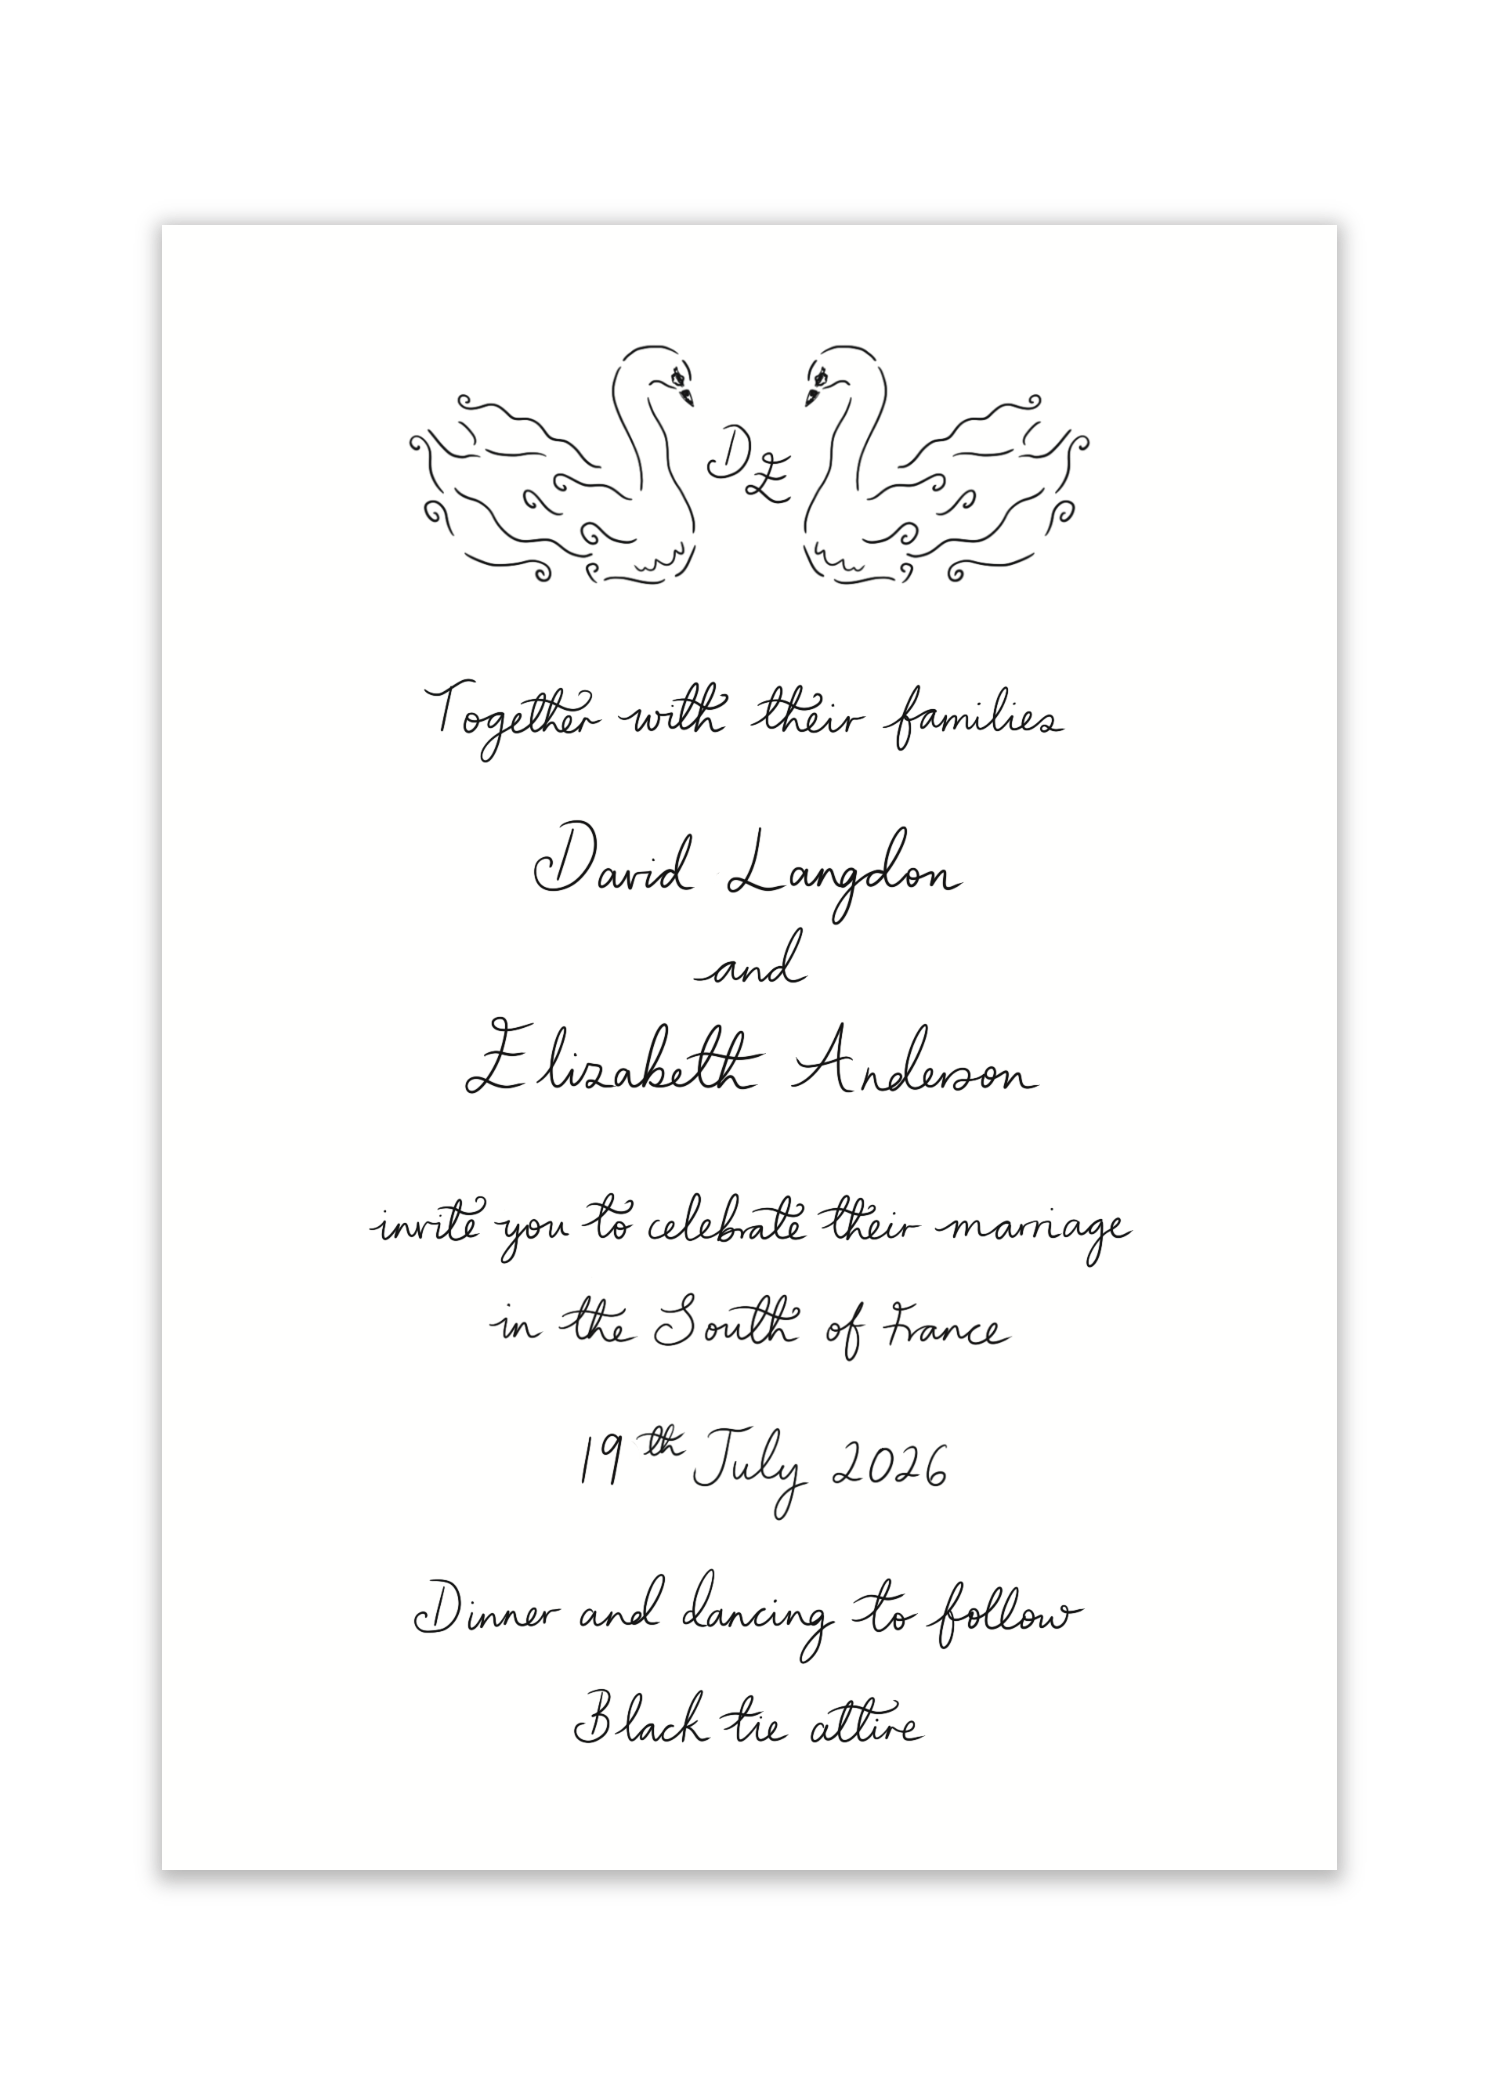 D E
Together with their families
David Langdon
and
Elizabeth Anderson
invite you to celebrate their marriage
in the South of France
19th July 2026
Dinner and dancing to follow
Black tie attire